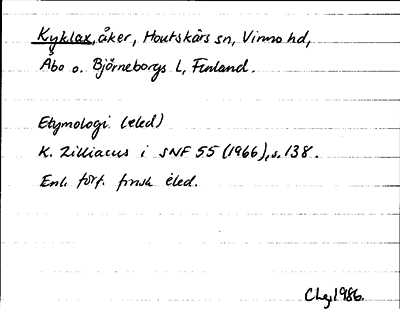 Kyklax, åker, Houtskärs sn, Vinmo hd,
Åbo o. Björneborgs L, Finland.
Etymologi (eled)
K. Zilliacus i SNF 55 (1966), s. 138.
Enl. förf. finsk eled.
1986.